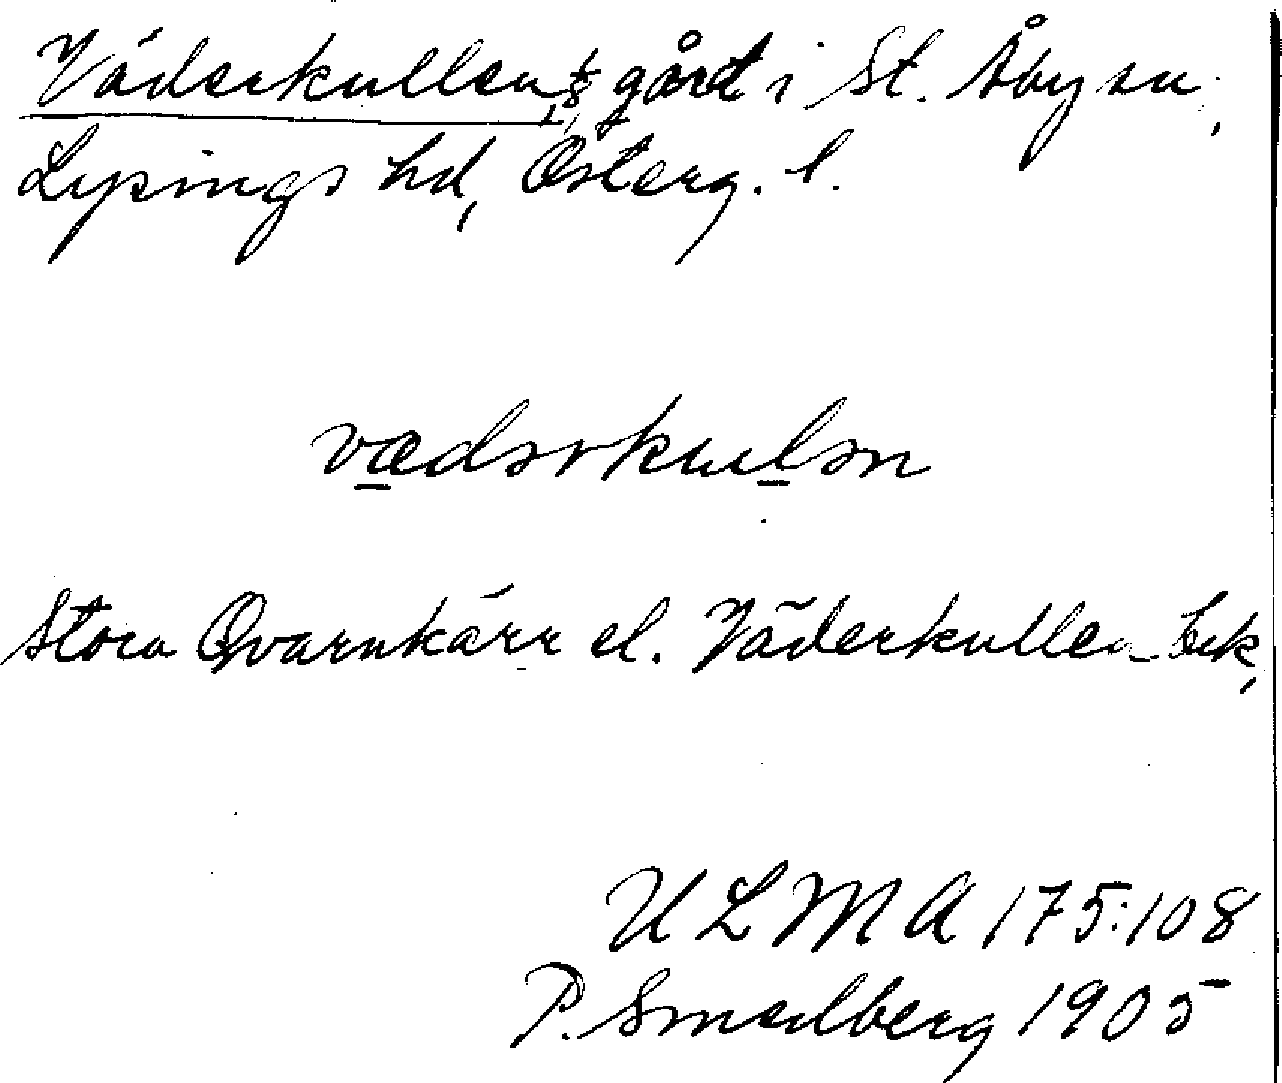 Väderkullen, gård i St. Åby sn,
Lysings hd, Österg. l.
vædərkulən
Stora Qvarnkärr el. Väderkullen
U L M A 175:108
P. Smedberg 1905